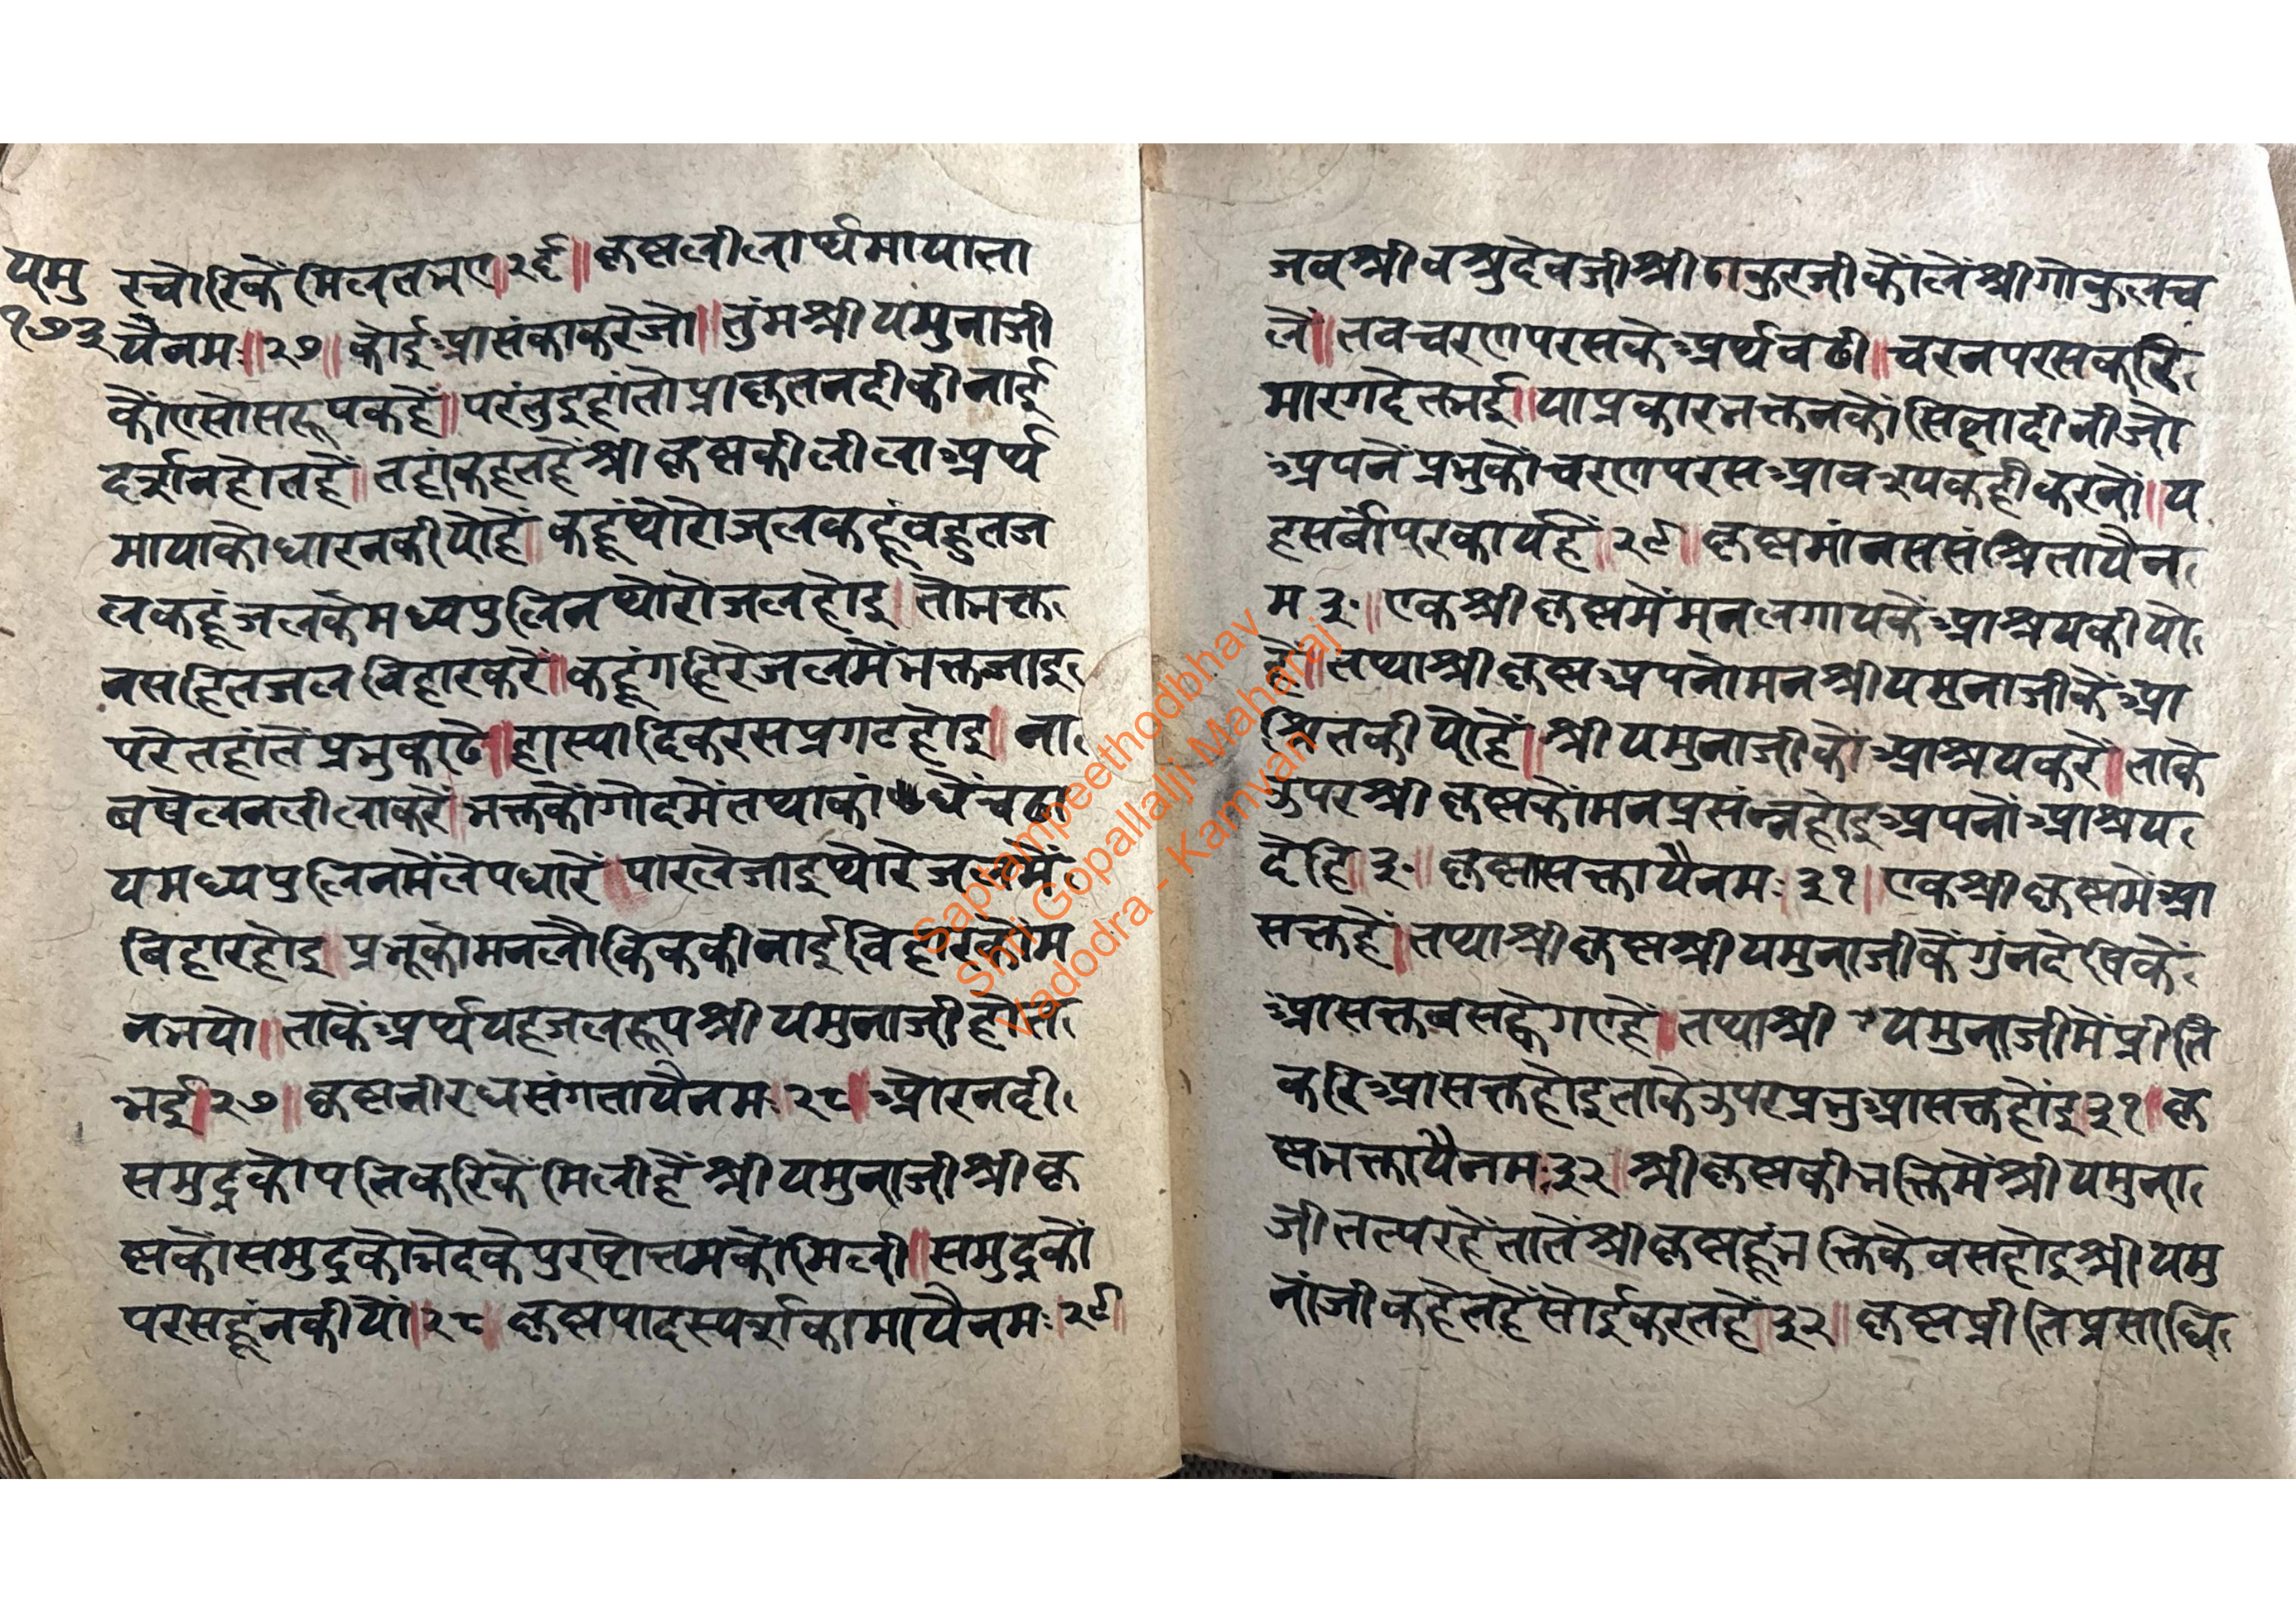 यमु
१७३
रचौरिकैं मिलत भए॥२६॥ कृष्णलीलार्थमायाता
यैनमः॥२७॥ कोई आसंका करै जो॥ तुंम श्री यमुनाजी
कौं एसो सरूप कहे॥ परंतु इहां तो प्राकृत नदी की नाई
दर्शन होत हैं॥ तहां कहत हैं श्री कृष्ण की लीला अर्थ
माया को धारन कीयो हैं॥ कहूं थोरो जल कहूं बहुत ज
ल कहूं जल के मध्य पुलिन थोरो जल होइ॥ तो भक्त
न सहित जल विहार करें॥ कहूं गहिरे जल में भक्त जाइ
परे तहां तें प्रभु काढे॥ हास्यादिक रस प्रगट होइ॥ ना
व षेलन लीला करें॥ भक्त कों गोद में तथा कांधें चढा
य मध्य पुलिन में ले पधारें॥ पार ले जाइ थोरे जल में
बिहार होइ॥ प्रभू को मन लौकिक की नाई विहार को म
न भयो॥ ताकें अर्थ यह जल रूप श्री यमुनाजी होत
भई॥२७॥ कृष्णनीरधसंगतायैनमः॥२८॥ ओर नदी
समुद्र को पति करिकें मिली हैं श्री यमुनाजी श्री कृ
ष्ण कों समुद्र को भेद के पुरषोत्तम कों मिली॥ समुद्र कों
परस हूं न कीयों॥२८॥ कृष्णपादस्पर्शकामायैनमः॥२९॥
जब श्री वश्रुदेवजी श्री ठाकुरजी कों लें श्री गोकुल च
लें॥ तब चरण परस के अर्थ बढी॥ चरन परस करि
मारग देत भई॥ या प्रकार भक्तन कों सिक्षा दीनी जो
अपनें प्रभु कों चरण परस आवश्यक ही करनों॥ य
ह सर्वोपर कार्य हैं॥२९॥ कृष्णमांनससंश्रितायैन
म ३०॥ एक श्री कृष्ण में मन लगाय कें आश्रय कीयो
हैं॥ तथा श्री कृष्ण अपनों मन श्री यमुनाजी कें आ
श्रित कीयो हैं॥ श्री यमुनाजी को आश्रय करें॥ ताके
उपर श्री कृष्ण कों मन प्रसंन्न होइ अपनों आश्रय
देहि॥३०॥ कृष्णासक्तायैनमः ३१॥ एक श्री कृष्ण में आ
सक्त हैं॥ तथा श्री कृष्ण श्री यमुनाजी कें गुंन देखि कें
आसक्त बस ह्वे गए हैं॥ तथा श्री यमुनाजी में प्रीति
करि आसक्त होइ ताके उपर प्रभु आसक्त होंइ ३१॥ कृ
ष्णभक्तायैनमः ३२॥ श्री कृष्ण की भक्ति में श्री यमुना
जी तत्पर हें तातें श्री कृष्ण हूं भक्ति के बस होइ श्री यमु
नांजी कहेत हैं सोई करत हैं ३२॥ कृष्णप्रीतिप्रसाधि
Saptampeethodbhav
Shri Gopallalji Maharaj
Vadodra - Kamvan